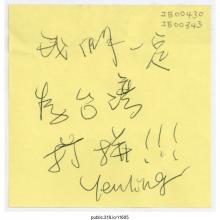 JB00430
JB00343
我們一定
為台灣
打拼!!!
Yenling
public.318.io/11685